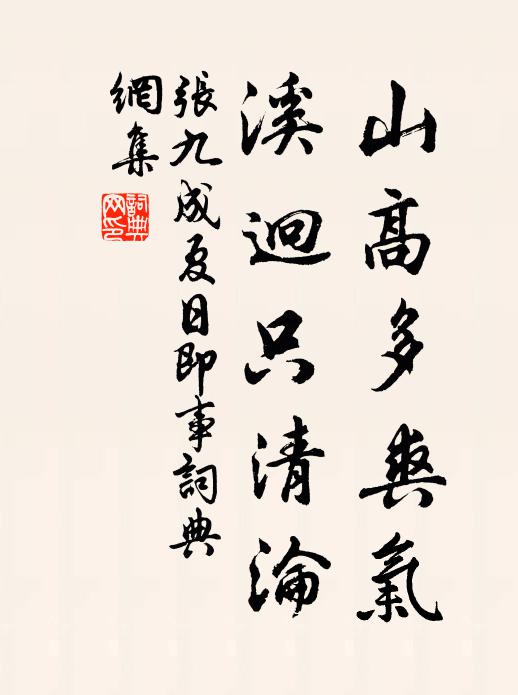 山高多爽氣
溪迴只清淪
張九成夏日即事詞典
網集
詞典
网印